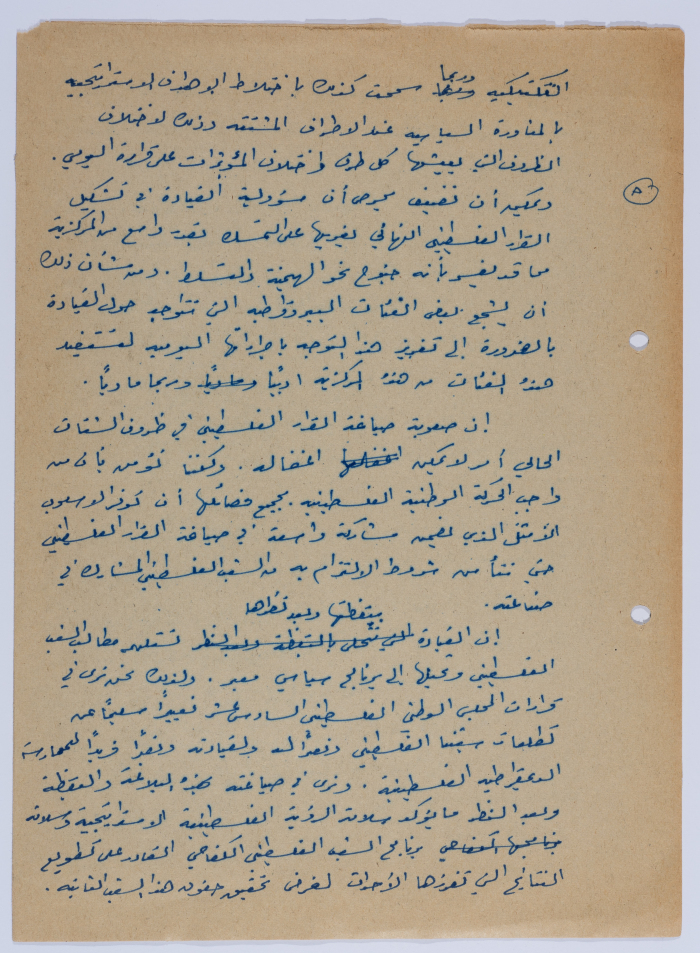 التكتيكيه وربما سمحت كذلك باختلاط الاهداف الاستراتيجيه
بالمناورة السياسيه عند الاطراف المشتته وذلك لاختلاف
الظروف التي يعيشها كل طرف واختلاف المؤثرات على قراره اليومي .
ويمكن أن نضيف بحرص أن مسؤولية القيادة في تشكيل
القرار الفلسطيني النهائي يغريها على التمسك بقدر واسع من المركزية
مما قد يفسر بأنه جنوح نحو الهيمنة والتسلط . ومن شأن ذلك
أن يشجع بعض الفئات البيروقراطيه التي تتواجد حول القيادة
بالضرورة إلى تعزيز هذا التوجه باجراءاتها اليوميه لتستفيد
هذه الفئات من هذه المركزية ادبيًا وربما ماديًا .
إن صعوبة صياغة القرار الفلسطيني في ظروف الشتات
الحالي أمر لا يمكن اغفاله . ولكننا نؤمن بأن من
واجب الحركة الوطنية الفلسطينيه بجميع فصائلها أن توفر الاسلوب
الأمثل الذي يضمن مشاركة واسعة في صياغة القرار الفلسطيني
حتى نتأمن شروط الالتزام به من الشعب الفلسطيني المشارك في
صناعته .
بيقظتها وبعد نظرها
إن القيادة تستلهم مطالب الشعب
الفلسطيني وتحيلها إلى برنامج سياسي معبر . ولذلك نحن نرى في
قرارات المجلس الوطني الفلسطيني السادس عشر تعبيرًا سليمًا عن
تطلعات شعبنا الفلسطيني وفخرًا له ولقيادته وفخرًا فريدًا للممارسة
الديمقراطيه الفلسطينية . ونرى في صياغته بهذه البلاغة واليقظة
وبعد النظر ما يؤكد سلامة الرؤية الفلسطينية الاستراتيجية وسلامة
برنامج الشعب الفلسطيني الكفاحي القادر على تطويع
النتائج التي تفرزها الأحداث لغرض تحقيق حقوق هذا الشعب الثابته .